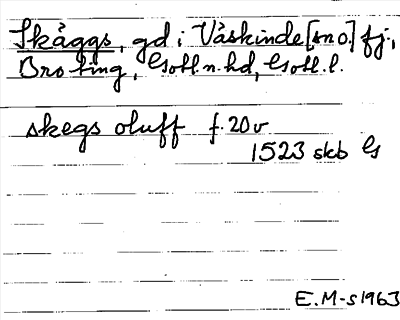 Skäggs, gd i Väskinde [sn o.] fj,
Bro ting, Gotl. n. hd, Gotl. l.
skegs oluff f. 20 v
1523 skb G
E. M-s 1963